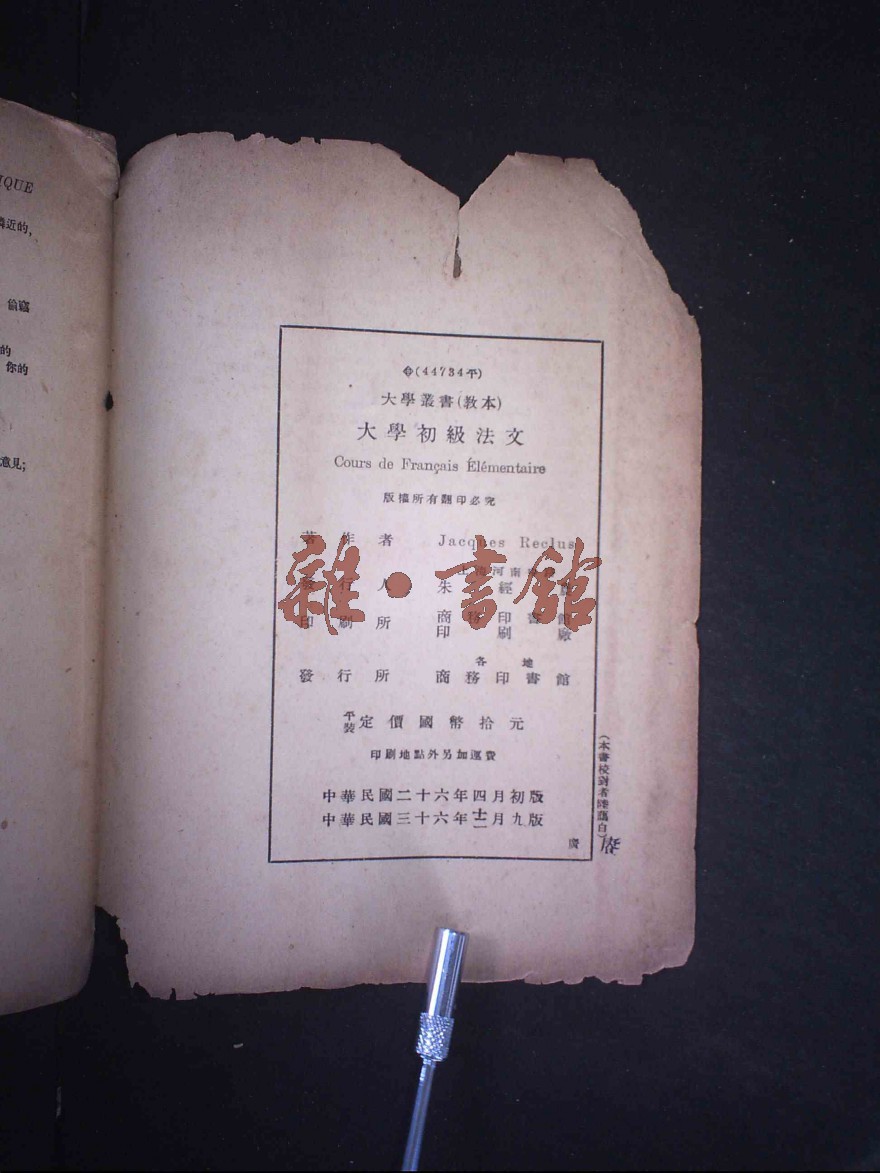 IQUE
近的,
偷竊
的
你的
意見;
(44734平)
大學叢書(教本)
大學初級法文
Cours de Français Élémentaire
版權所有翻印必究
著作者 Jacques Reclus
河南
發行人 朱經
印刷所 商務印書館
印刷廠
各地
發行所 商務印書館
平裝 定價國幣拾元
印刷地點外另加運費
中華民國二十六年四月初版
中華民國三十六年十二月九版
(本書校對者陸 白)
雜·書館